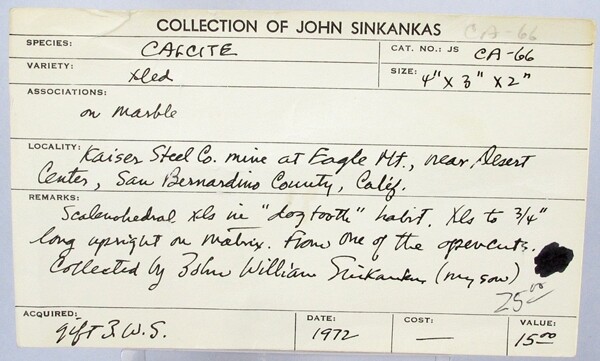 COLLECTION OF JOHN SINKANKAS CA-66
SPECIES: CALCITE
CAT. NO.: JS CA-66
VARIETY: xled
SIZE: 4" X 3" X 2"
ASSOCIATIONS:
on marble
LOCALITY: Kaiser Steel Co. mine at Eagle Mt., near Desert
Center, San Bernardino County, Calif.
REMARKS:
Scalenohedral xls in "dogtooth" habit. Xls to 3/4"
long upright on matrix. From one of the opencuts.
Collected by John William Sinkankas (my son)
25.00
ACQUIRED: gift J.W.S.
DATE: 1972
COST: —
VALUE: 15.00